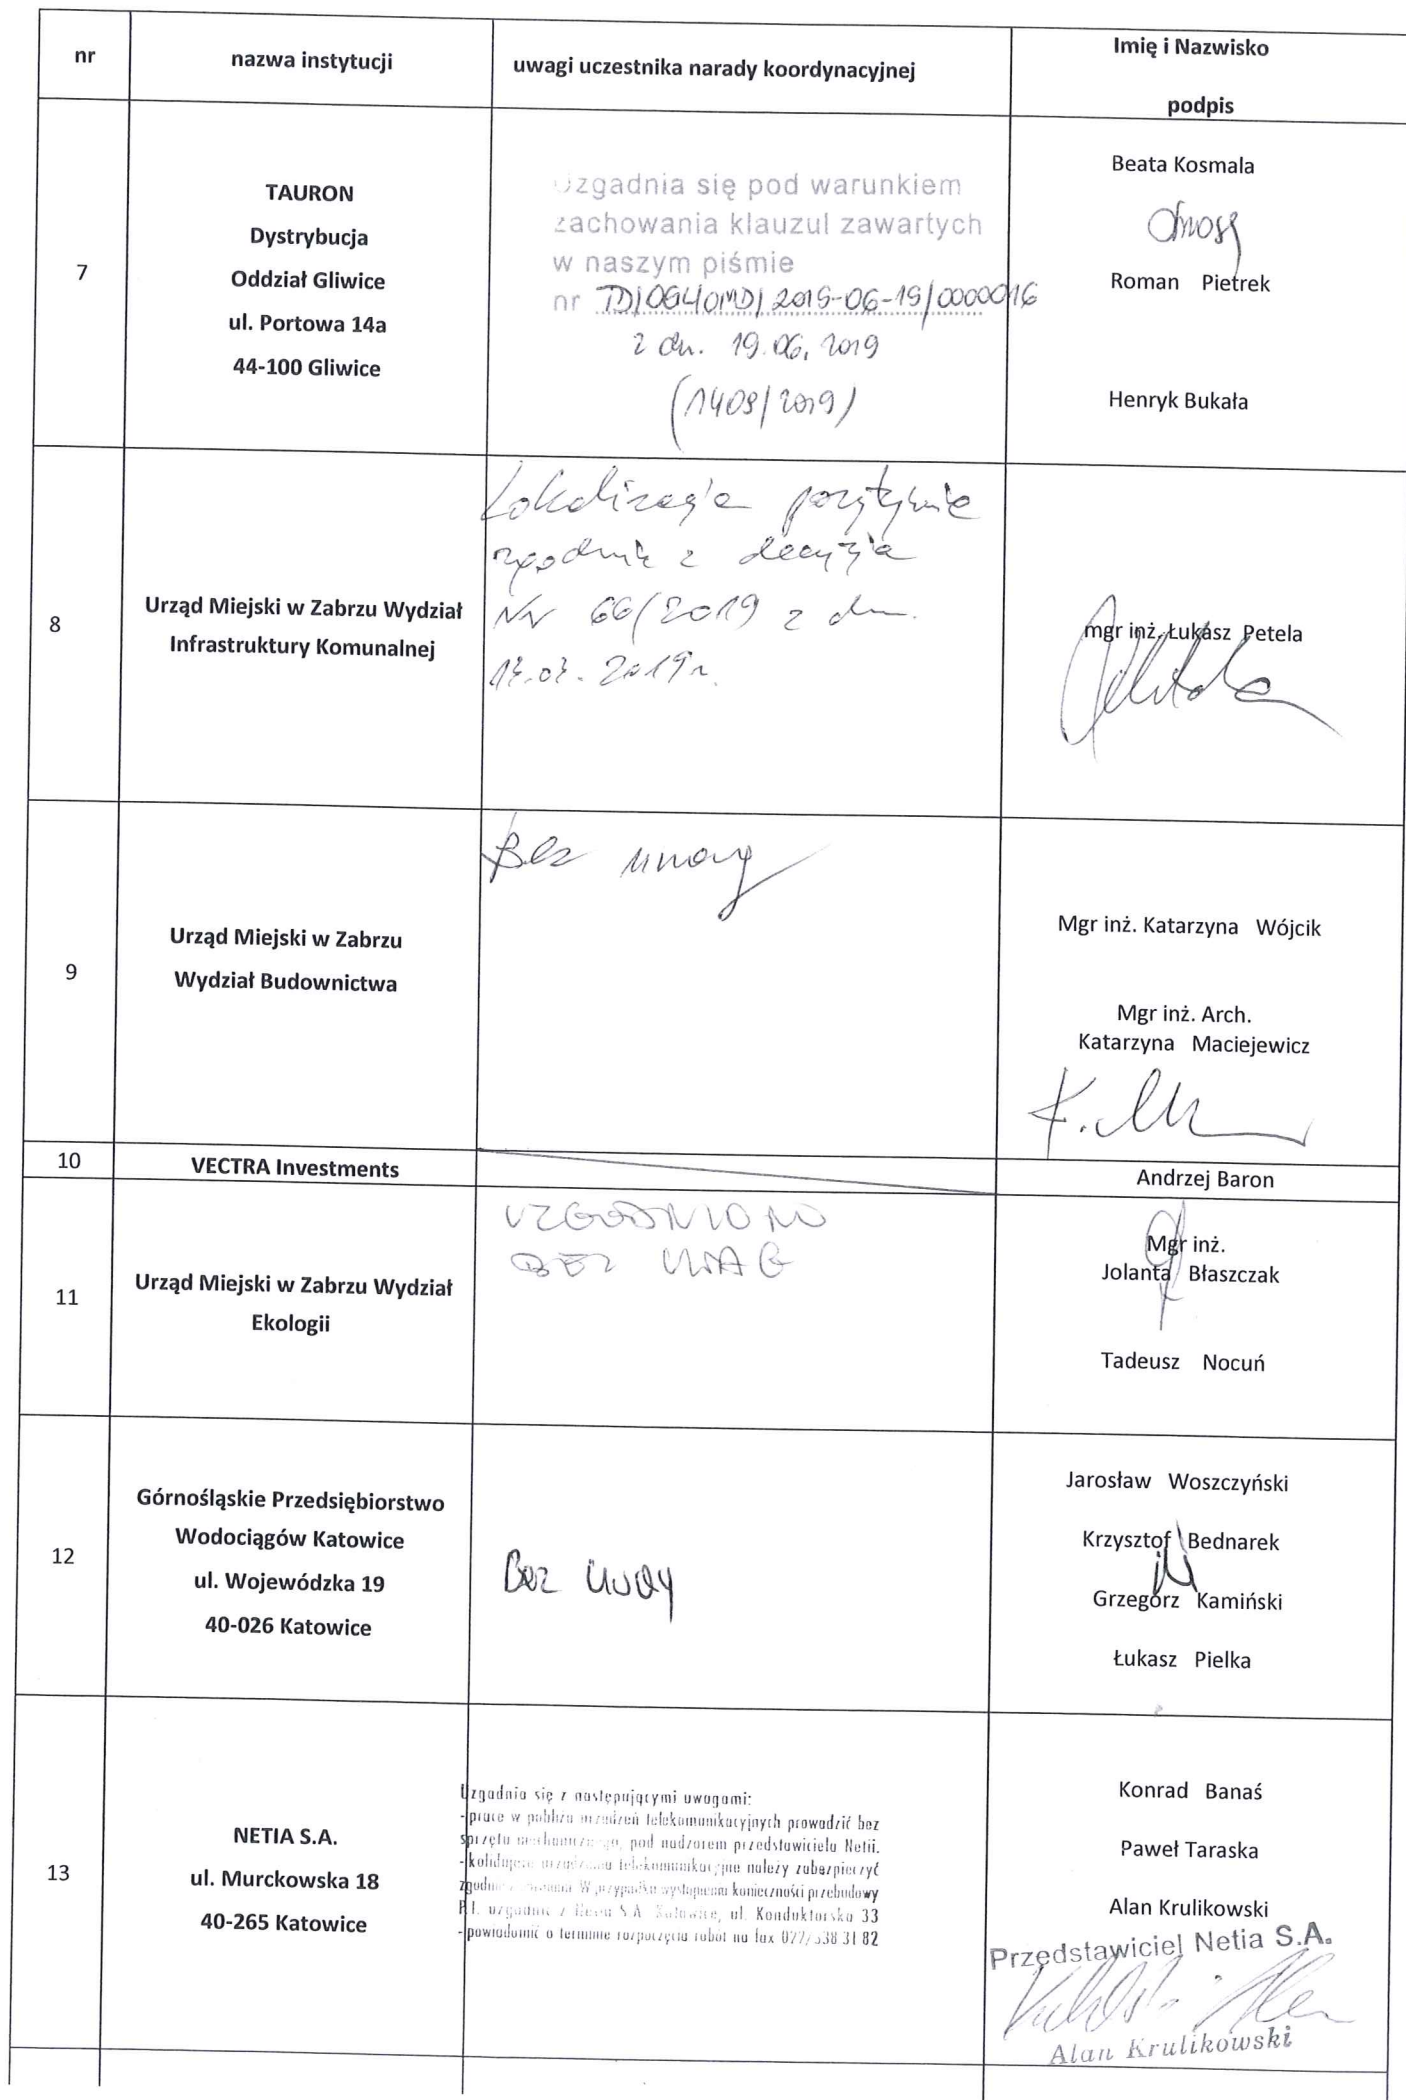 nr
nazwa instytucji
uwagi uczestnika narady koordynacyjnej
Imię i Nazwisko
podpis
7
TAURON
Dystrybucja
Oddział Gliwice
ul. Portowa 14a
44-100 Gliwice
Uzgadnia się pod warunkiem
zachowania klauzul zawartych
w naszym piśmie
nr TD/OGL/OMD/2019-06-19/0000016
z dn. 19.06.2019
(1409/2019)
Beata Kosmala
Roman Pietrek
Henryk Bukała
8
Urząd Miejski w Zabrzu Wydział
Infrastruktury Komunalnej
Lokalizacja pozytywnie
zgodnie z decyzja
Nr 66/2019 z dn.
2019r.
mgr inż. Łukasz Petela
9
Urząd Miejski w Zabrzu
Wydział Budownictwa
Bez uwag
Mgr inż. Katarzyna Wójcik
Mgr inż. Arch.
Katarzyna Maciejewicz
10
VECTRA Investments
Andrzej Baron
11
Urząd Miejski w Zabrzu Wydział
Ekologii
UZGODNIONO
BEZ UWAG
Mgr inż.
Jolanta Błaszczak
Tadeusz Nocuń
12
Górnośląskie Przedsiębiorstwo
Wodociągów Katowice
ul. Wojewódzka 19
40-026 Katowice
Bez uwag
Jarosław Woszczyński
Krzysztof Bednarek
Grzegorz Kamiński
Łukasz Pielka
13
NETIA S.A.
ul. Murckowska 18
40-265 Katowice
Uzgadnia się z następującymi uwagami:
-prace w pobliżu urządzeń telekomunikacyjnych prowadzić bez
sprzętu mechanicznego, pod nadzorem przedstawiciela Netii.
-kolidujące urządzenia telekomunikacyjne należy zabezpieczyć
zgodnie z W przypadku wystąpienia konieczności przebudowy
P.T. uzgodnić z Netia S.A. Katowice, ul. Konduktorska 33
-powiadomić o terminie rozpoczęcia robót na fax 38 31 82
Konrad Banaś
Paweł Taraska
Alan Krulikowski
Przedstawiciel Netia S.A.
Alan Krulikowski